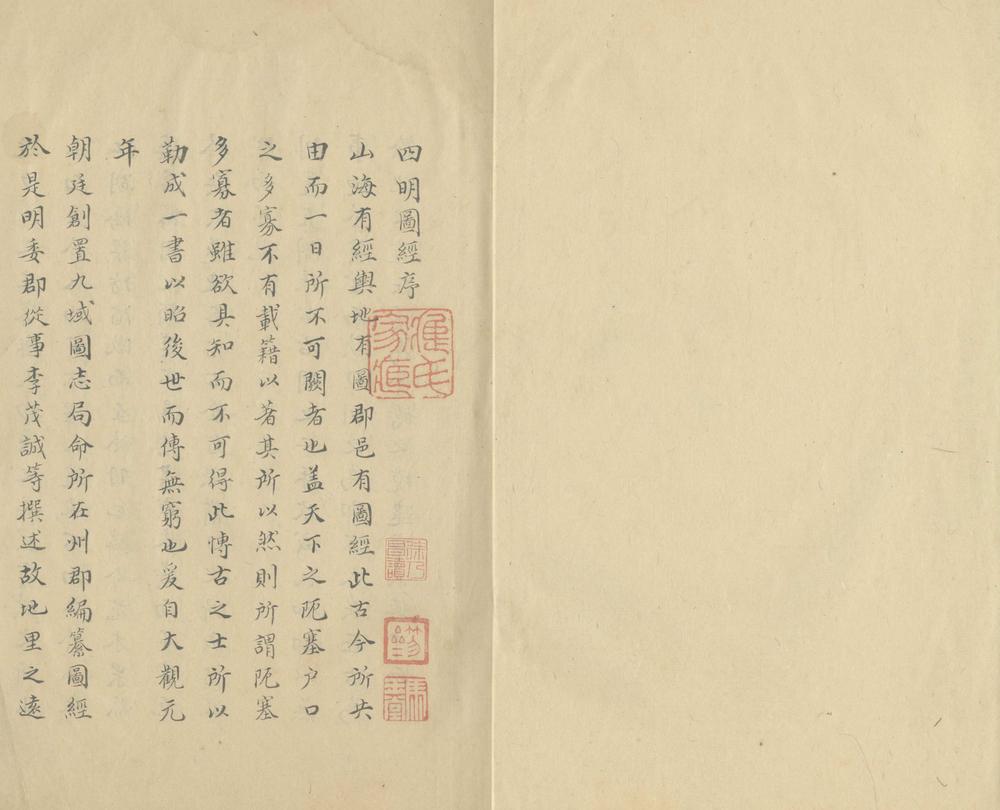 四明圖經序
山海有經輿地有圖郡邑有圖經此古今所共
由而一日所不可闕者也盖天下之阨塞户口
之多寡不有載籍以著其所以然則所謂阨塞
多寡者雖欲具知而不可得此愽古之士所以
勒成一書以昭後世而傳無窮也爰自大觀元
年
朝廷創置九域圖志局命所在州郡編纂圖經
於是明委郡從事李茂誠等撰述故地里之遠